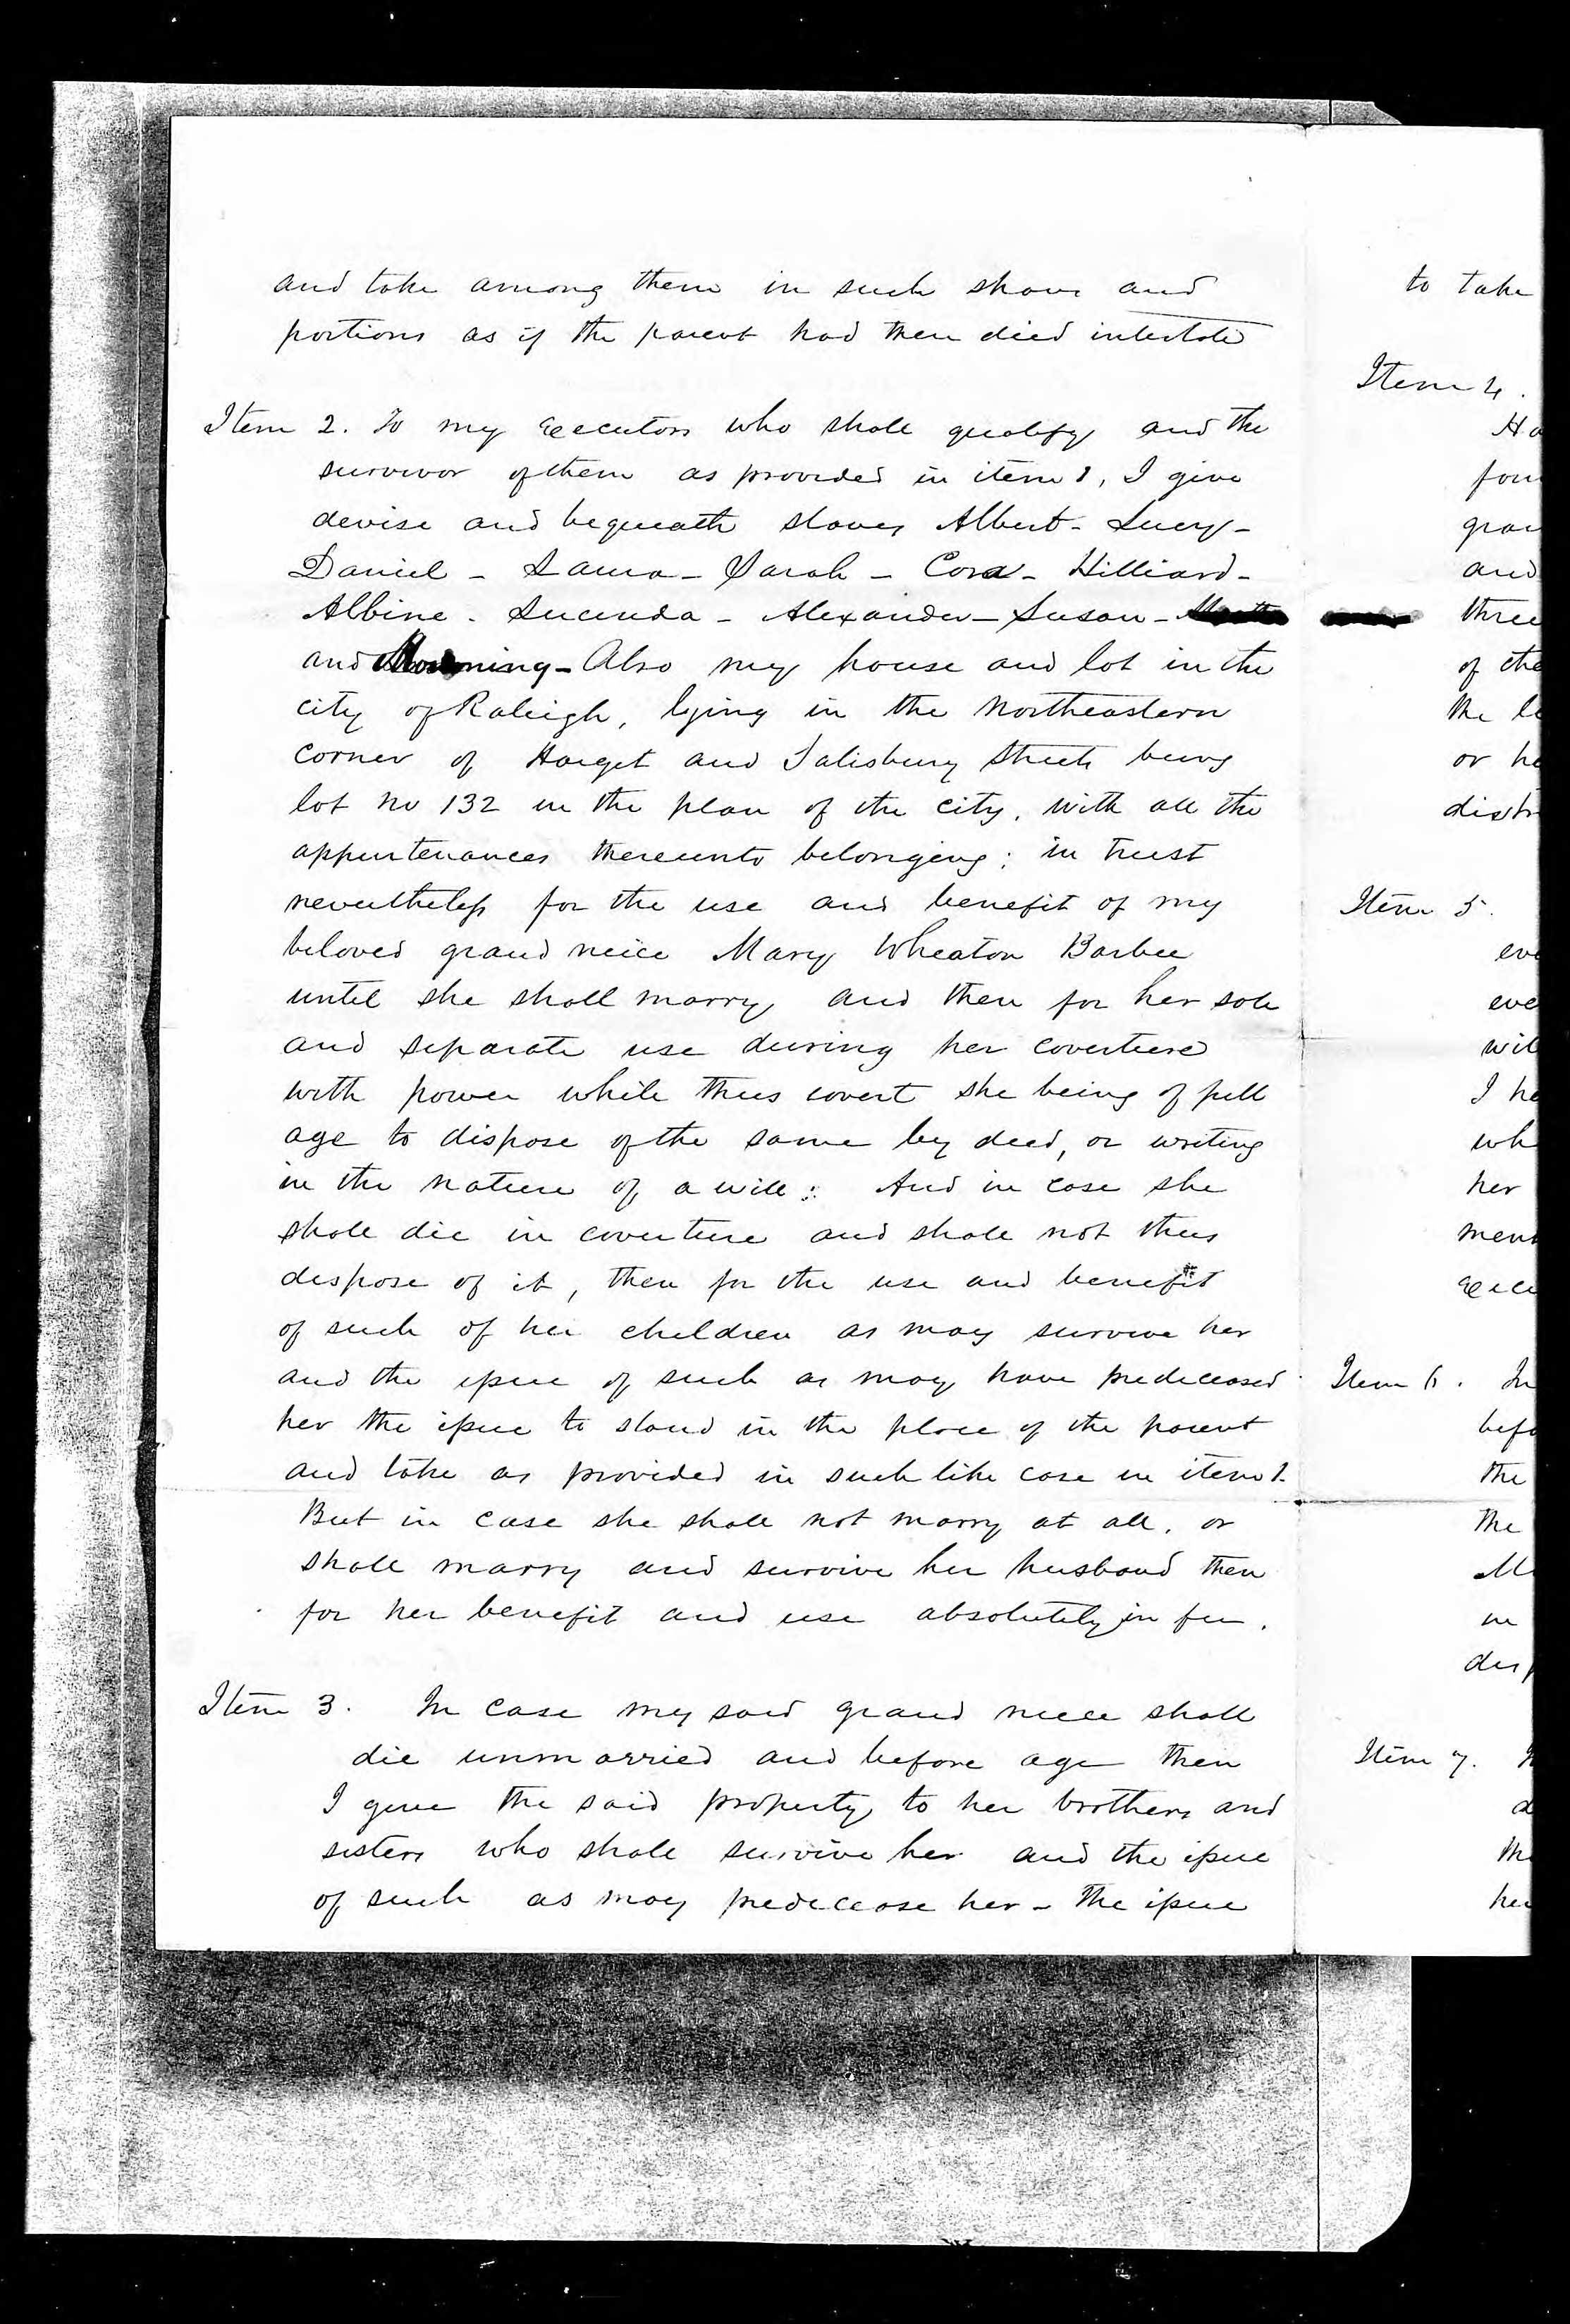 and take among them in such share and
portions as if the parent had then died intestate
Item 2. To my Executors who shall qualify and the
survivor of them as provided in item 1, I give
devise and bequeath slaves Albert - Lucy -
Daniel - Laura - Sarah - Cora - Hilliard -
Albine - Lucinda - Alexander - Susan -
and Mourning - Also my house and lot in the
city of Raleigh, lying in the Northeastern
corner of Harget and Salisbury Streets being
lot no 132 in the plan of the city, with all the
appurtenances thereunto belonging; in trust
nevertheless for the use and benefit of my
beloved grand neice Mary Wheaton Barbee
until she shall marry and then for her sole
and separate use during her coverture
with power while thus covert she being of full
age to dispose of the same by deed, or writing
in the nature of a will: And in case she
shall die in coverture and shall not thus
dispose of it, then for the use and benefit
of such of her children as may survive her
and the issue of such as may have predeceased
her the issue to stand in the place of the parent
and take as provided in such like case in item 1.
But in case she shall not marry at all, or
shall marry and survive her husband then
for her benefit and use absolutely in fee.
Item 3. In case my said grand neice shall
die unmarried and before age then
I give the said property to her brothers and
sisters who shall survive her and the issue
of such as may predecease her - the issue
to take
Item 4.
Ha
four
gran
and
three
of the
the le
or he
distr
Item 5.
eve
eve
wil
I he
wh
her
ment
Execu
Item 6. In
befo
the
the
M
in
disp
Item 7.
the
her